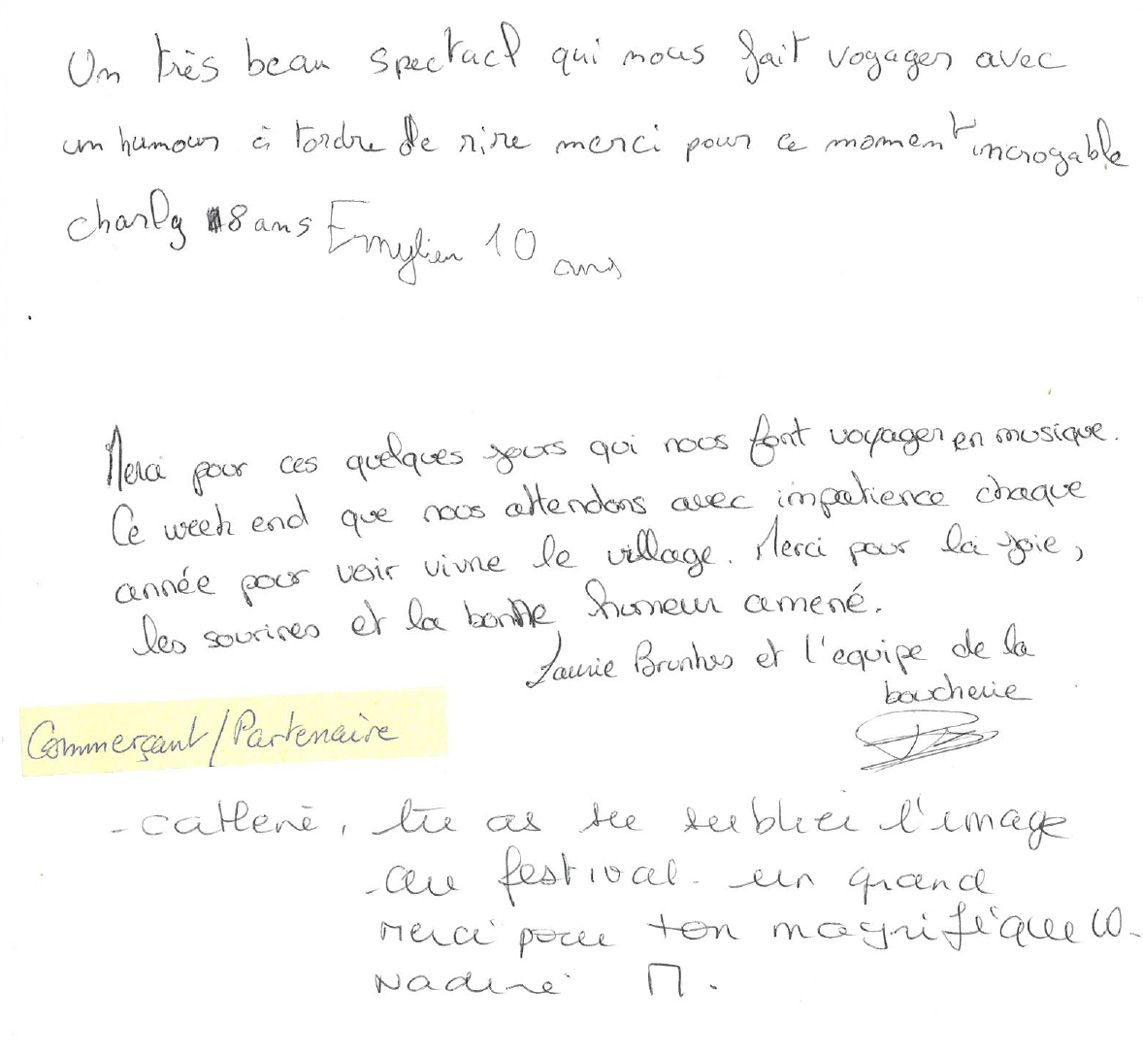 Un très beau spectacl qui nous fait voyager avec
un humour à tordre de rire merci pour ce moment incroyable
charly 8 ans Emylien 10 ans
Merci pour ces quelques jours qui nous font voyager en musique.
Ce week end que nous attendons avec impatience chaque
année pour voir vivre le village. Merci pour la joie,
les sourires et la bonne humeur amené.
Laurie Brunhes et l'equipe de la
boucherie
Commerçant/Partenaire
- cathene, tu as su sublier l'image
au festival. un grand
merci pour ton magnifique
Nadine M.